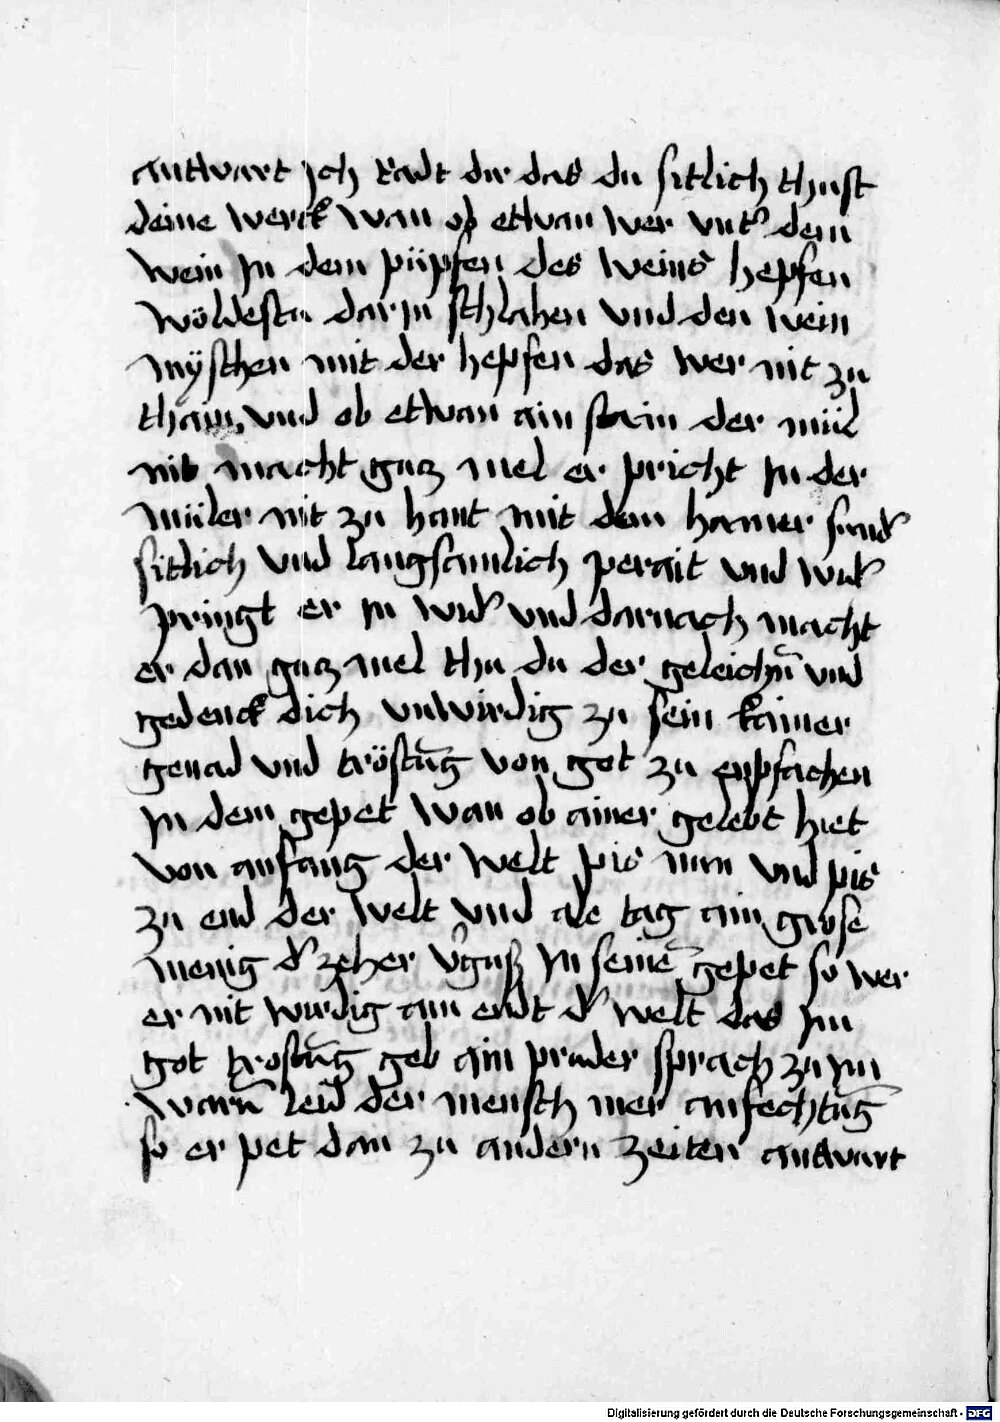 antwart jch radt dir das du sitlich thust
deine werck wan ob etwan wer vntʾ dem
wein jn dem püpfen des weins hepfen
wöldestu darjn schlahen vnd den wein
mÿschen mit der hepfen das wer nit zu
thain vnd ob etwan ain stain der mül
nit macht gutz mel er pricht jn der
müler nit zu hant mit dem hamer sundʾ
sitlich vnd langsamlich perait vnd widʾ
pringt er jn widʾ vnd darnach macht
er dan gutz mel thu du der geleichn̄ vnd
gedenck dich vnwirdig zu sein kainer
genad vnd tröstūg von got zu enpfachen
jn dem gepet wan ob ainer gelebt hiet
von anfang der welt pis nun vnd pis
zu end der welt vnd ale tag ain grose
menig dʾ zeher vʾguß jn seinē gepet so wer
er nit wirdig am endt dʾ welt das jm
got trostūg geb ain pruder sprach zu jm
warū leid der mensch mer anfechtūg
so er pet dan zu andern zeiten antwart
Digitalisierung gefördert durch die Deutsche Forschungsgemeinschaft - DFG